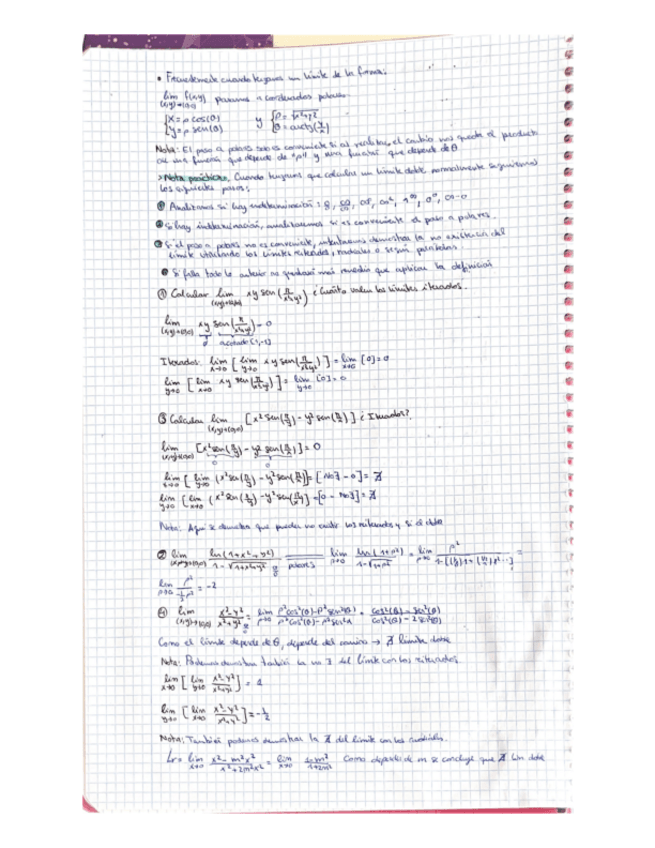 • Frecuentemente cuando tengamos un límite de la forma:
lim f(x,y) pasamos a coordenadas polares.
(x,y)→(0,0)
{x = ρ cos(θ) y {ρ = √x²+y²
{y = ρ sen(θ) {θ = arctg(y/x)
Nota: El paso a polares solo es conveniente si al realizar el cambio nos queda el producto
de una función que depende de "ρ" y una función que depende de θ
>Nota práctica. Cuando tengamos que calcular un límite doble, normalmente seguiremos
los siguientes pasos:
Analizamos si hay indeterminación: 0/0, ∞/∞, 0·∞, ∞⁰, 1^∞, 0⁰, ∞-∞
Si hay indeterminación, analizaremos si es conveniente el paso a polares.
Si el paso a polares no es conveniente, intentaremos demostrar la no existencia del
límite utilizando los límites reiterados, radiales o según parábolas.
Si falla todo lo anterior no quedará más remedio que aplicar la definición
① Calcular lim xy sen(π/x²+y²) ¿Cuánto valen los límites iterados.
(x,y)→(0,0)
lim xy sen(π/x²+y²) = 0
(x,y)→(0,0) 0 acotado [1,-1]
Iterados: lim x→0 [lim y→0 xy sen(π/x²+y²)] = lim x→0 [0] = 0
lim y→0 [lim x→0 xy sen(π/x²+y²)] = lim y→0 [0] = 0
③ Calcular lim (x,y)→(0,0) [x² sen(π/y) - y² sen(π/x)] ¿Iterados?
lim (x,y)→(0,0) [x² sen(π/y) - y² sen(π/x)] = 0
0 0
lim x→0 [lim y→0 (x² sen(π/y) - y² sen(π/x))] = [No∃ - 0] = ∄
lim y→0 [lim x→0 (x² sen(π/y) - y² sen(π/x))] = [0 - No∃] = ∄
Nota: Aquí se demuestra que pueden no existir los reiterados y si el doble
② lim (x,y)→(0,0) ln(1+x²+y²)/1-√1+x²+y² polares lim ρ→0 ln(1+ρ²)/1-√1+ρ² = lim ρ→0 ρ²/
lim ρ→0 = -2
④ lim (x,y)→(0,0) = lim ρ→0
Como el límite depende de θ, depende del camino → ∄ límite doble
Nota: Podemos demostrar también la no ∃ del límite con los reiterados
lim x→0 [lim y→0 ] = 1
lim y→0 [lim x→0 ] = -1/2
Nota: También podemos demostrar la ∄ del límite con los radiales.
Lr = lim x→0 x²-m²x²/x²+2m²x² = lim x→0 1-m²/1+2m² Como depende de m se concluye que ∄ lim doble